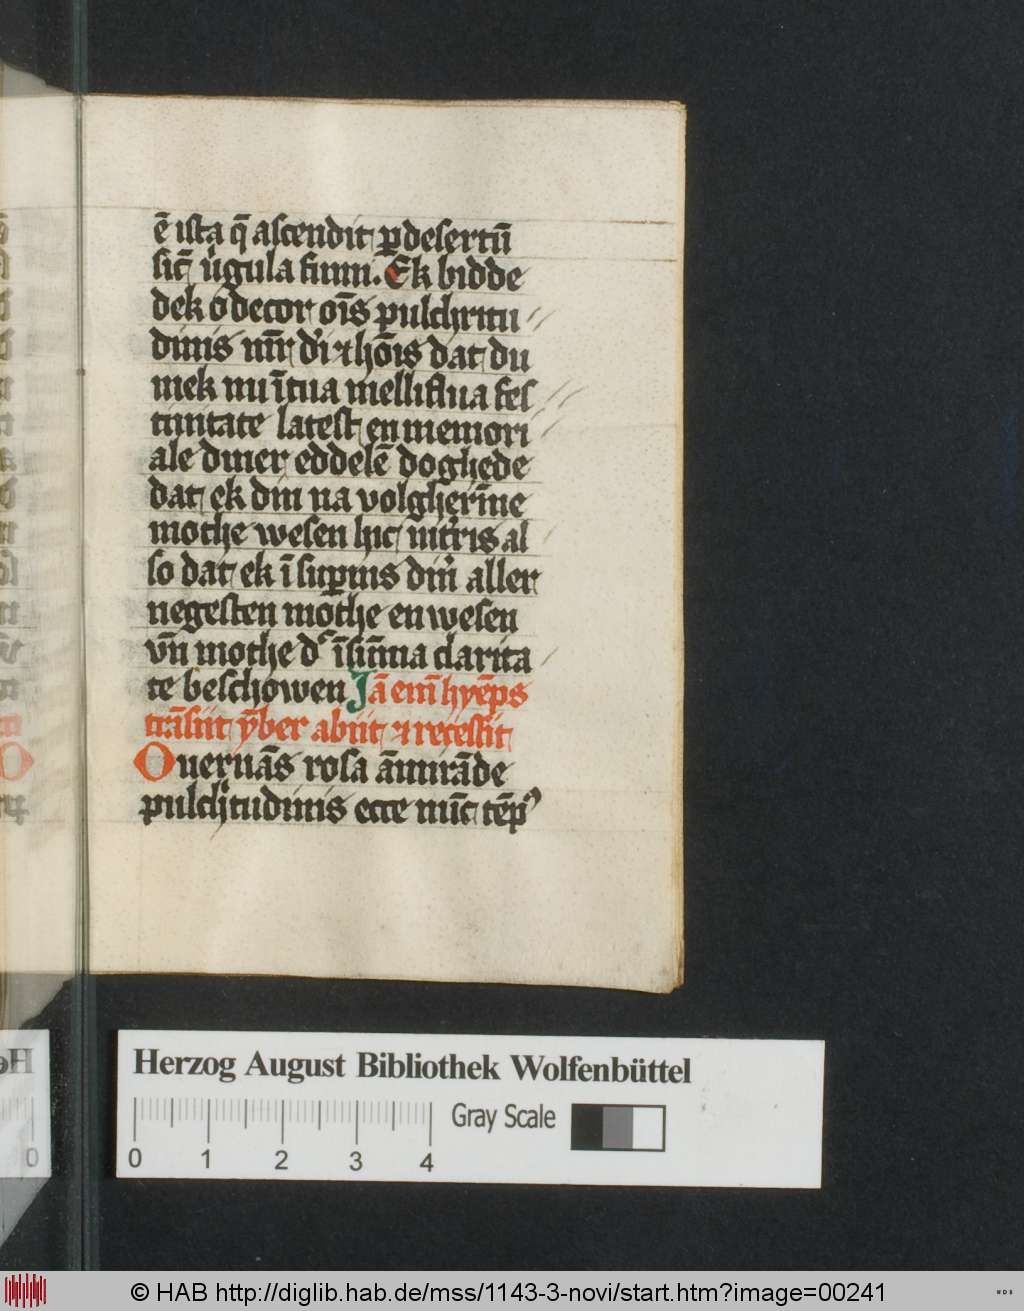 ē ista q̄ ascendit ꝑ desertū
sic̄ u̇gula fumi. Ek bidde
dek o decor oīs pulchritu
dinis mr̄ dī ⁊ hōīs dat du
mek nu ī tua melliflua fes
tiuitate latest en memori
ale diner eddelē doghede
dat ek din na volgherīne
mothe wesen hic
so dat ek ī suꝑnis dīn aller
negesten mothe en wesen
vn̄ mothe claritā
te beschowen Jā em̄ hyēps
trāsiit ẏber abiit ⁊ recessit
O uernās rosa āmirāde
pulch'tudinis ecce nūc tēpꝰ
Herzog August Bibliothek Wolfenbüttel
Gray Scale
0 1 2 3 4
© HAB http://diglib.hab.de/mss/1143-3-novi/start.htm?image=00241